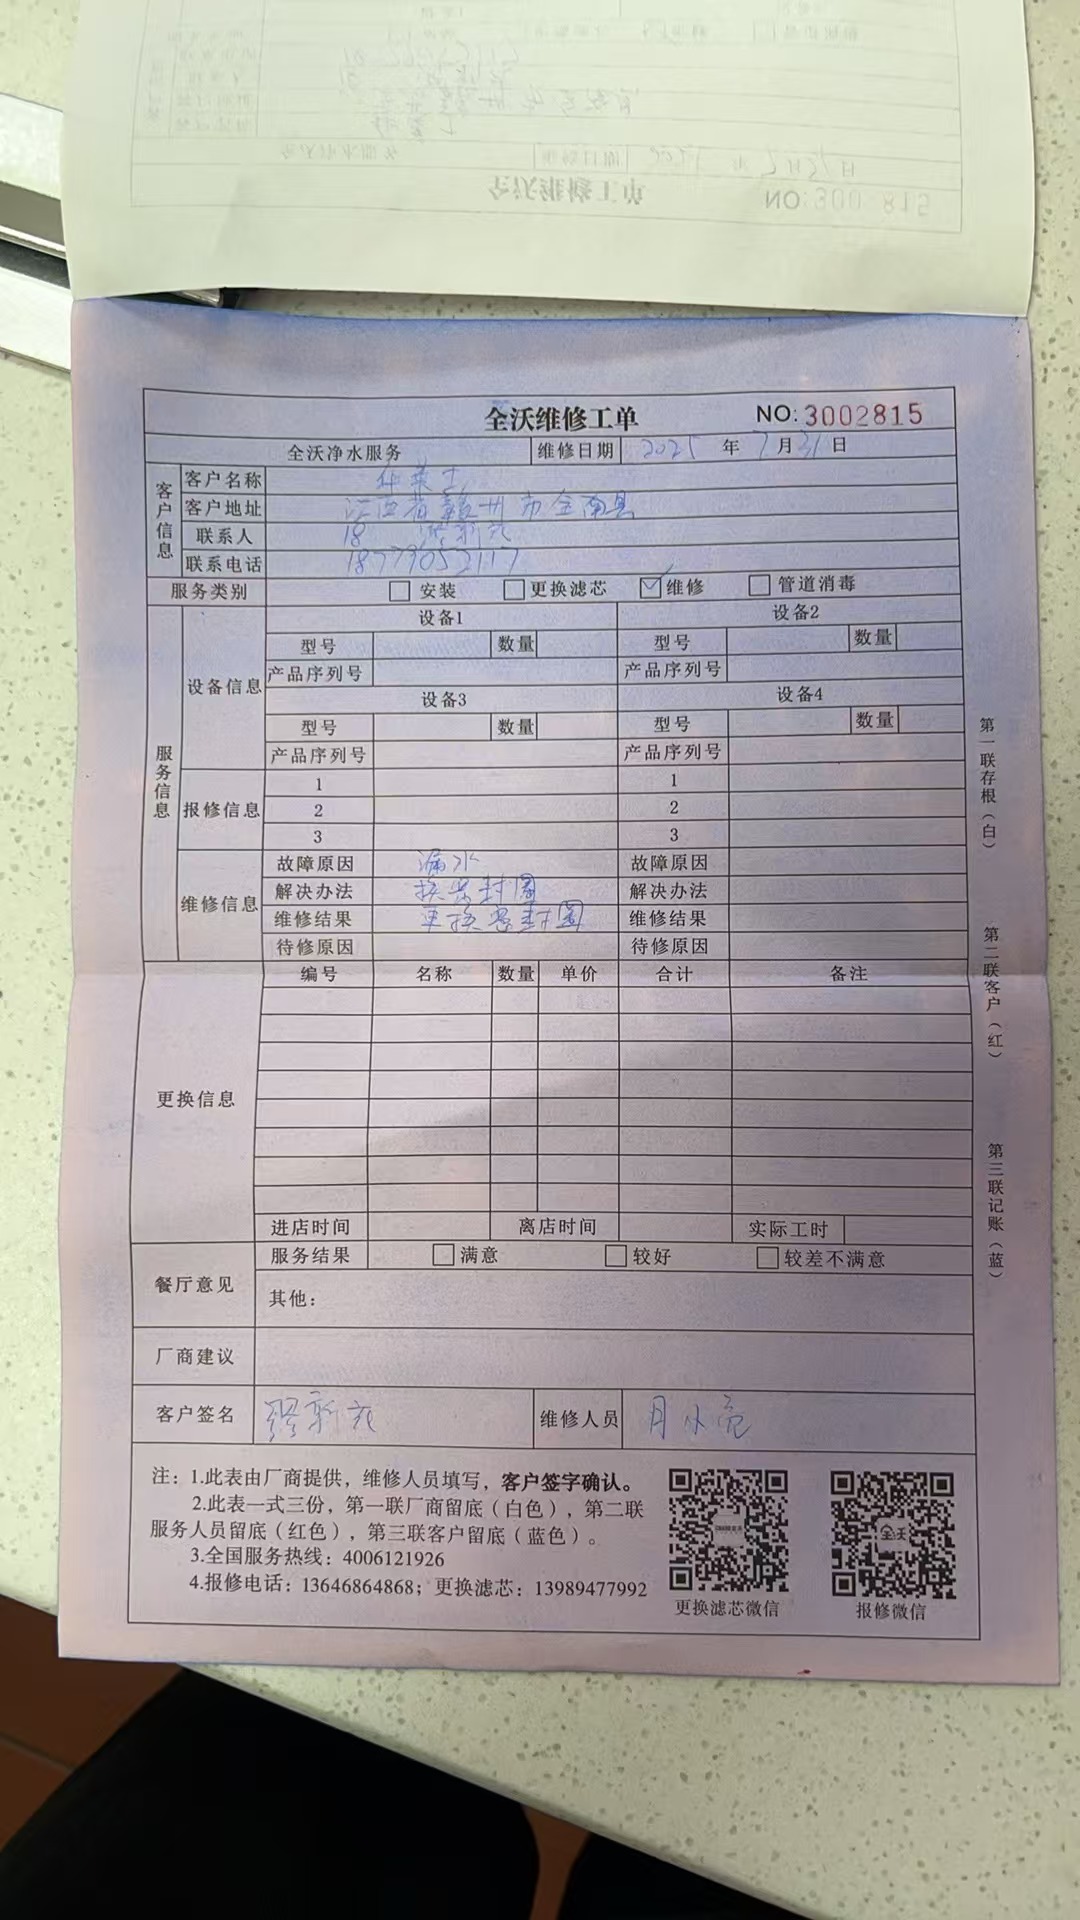 全沃维修工单 NO:3002815
全沃净水服务 维修日期 2025 年 7 月 31 日
客户信息
客户名称
客户地址 江西省赣州市全南县
联系人 18
联系电话 18779052117
服务类别 安装 更换滤芯 维修 管道消毒
服务信息
设备信息
设备1 设备2
型号 数量 型号 数量
产品序列号 产品序列号
设备3 设备4
型号 数量 型号 数量
产品序列号 产品序列号
报修信息
1 1
2 2
3 3
维修信息
故障原因 漏水 故障原因
解决办法 换密封圈 解决办法
维修结果 更换密封圈 维修结果
待修原因 待修原因
更换信息
编号 名称 数量 单价 合计 备注
进店时间 离店时间 实际工时
餐厅意见
服务结果 满意 较好 较差不满意
其他：
厂商建议
客户签名 维修人员 月小亮
注：1.此表由厂商提供，维修人员填写，客户签字确认。
2.此表一式三份，第一联厂商留底（白色），第二联
服务人员留底（红色），第三联客户留底（蓝色）。
3.全国服务热线：4006121926
4.报修电话：13646864868；更换滤芯：13989477992
更换滤芯微信 报修微信
第一联存根（白）
第二联客户（红）
第三联记账（蓝）